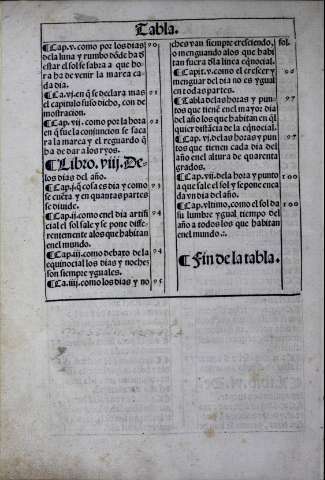 Tabla.
¶Cap.v. como por los dias 90
de la luna y rumbo dõde ha d̃
estar el sol se sabra a que ho
ra ha de venir la marea ca
da dia.
¶Ca.vj. en q̃ se declara mas 91
el capitulo suso dicho, con de
mostracion.
¶Cap.vij. como por la hora 92
en q̃ fue la conjuncion se saca
ra la marea y el reguardo q̃
ha de dar a los ryos.
¶Libro. viij. De
los dias del año.
¶Cap.j. q̃ cosa es dia y como 93
se cuẽta y en quantas partes
se diuide.
¶Cap.ij. como en el dia artifi 94
cial el sol sale y se pone diffe-
rentemente a los que habitan
en el mundo.
¶Cap.iij. como debaxo de la 94
equinocial los dias y noches
son siempre yguales.
¶Ca.iiij. como los dias y no 95
ches van siempre cresciendo, fol.
o menguando a los que habi
tan fuera d̃la linea eq̃nocial.
¶Capit.v. como el crescer y 96
menguar del dia no es ygual
en todas partes.
¶Tabla de las horas y pun 97
tos que tienẽ en el mayor dia
del año los que habitan en q̃l
quier distãcia de la eq̃nocial.
¶Cap.vj. de las horas y pun 97
tos que tienen cada dia del
año en el altura de quarenta
grados.
¶Cap.vij. de la hora y punto 100
a que sale el sol y se pone en ca
da vn dia del año.
¶Cap. vltimo, como el sol da 100
su lumbre ygual tiempo del
año a todos los que habitan
en el mundo.
¶Fin de la tabla.